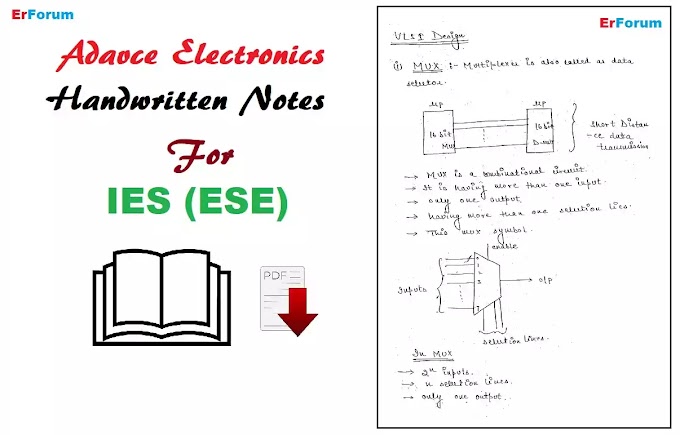 ErForum
Adavce Electronics
Handwritten Notes
For
IES (ESE)
PDF
ErForum
VLSI Design
(i) MUX :- Multiplexer is also called as data
selector.
μP
μP
16 bit
16 bit
MUX
D-MUX
short Distan
-ce data
transmission
→ MUX is a combinational circuit.
→ It is having more than one input.
→ only one output.
→ having more than one selection lies.
→ This mux symbol.
enable
Inputs
o/p
selection lines.
In MUX
→ 2ⁿ inputs.
→ n selection lines.
→ only one output.